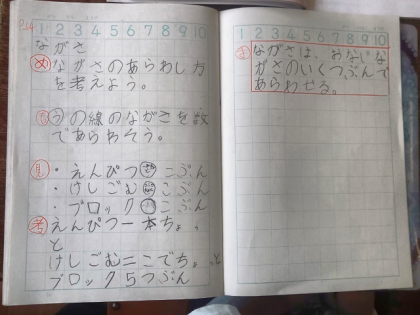 P34
1 2 3 4 5 6 7 8 9 10
ながさ
め ながさのあらわし方
を考えよう。
うの線のながさを数
であらわそう。
見 ・えんぴつ こぶん
・けしごむ こぶん
・ブロック こぶん
考 えんぴつ一本ちょっ
と
けしごむ二こでちょっと
ブロック5つぶん
1 2 3 4 5 6 7 8 9 10
ま ながさは、おなじな
がさのいくつぶんで
あらわせる。